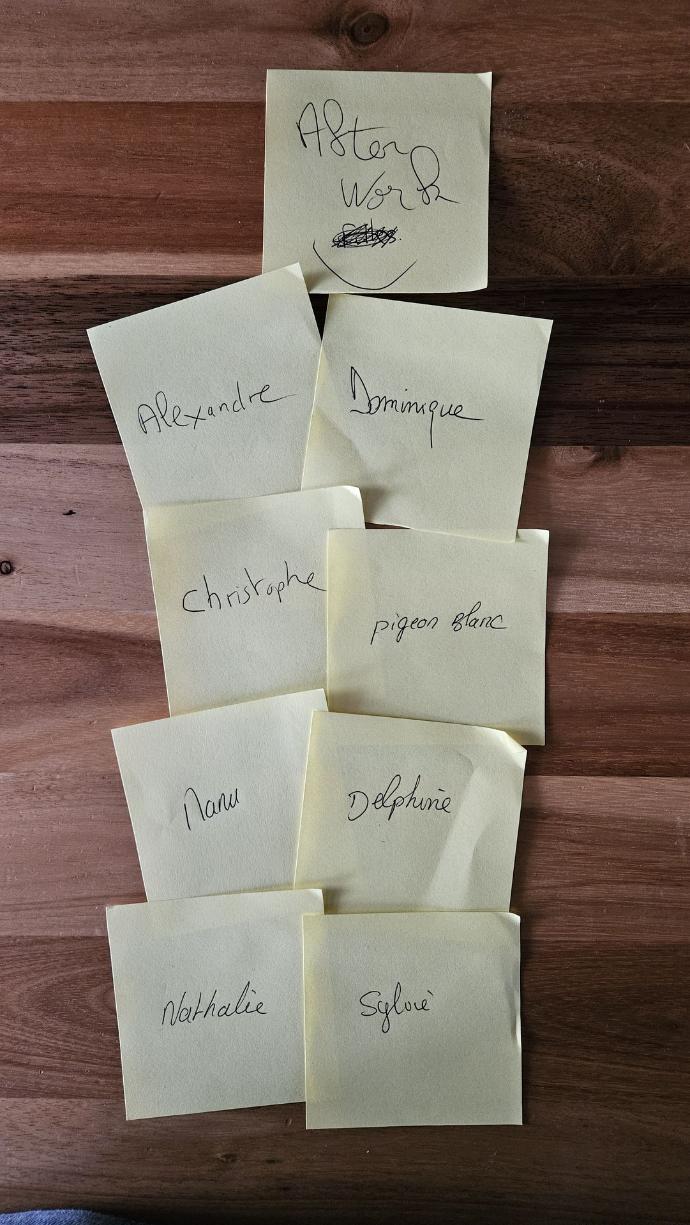 After
Work
Alexandre
Dominique
Christophe
pigeon Blanc
Manu
Delphine
Nathalie
Sylvie